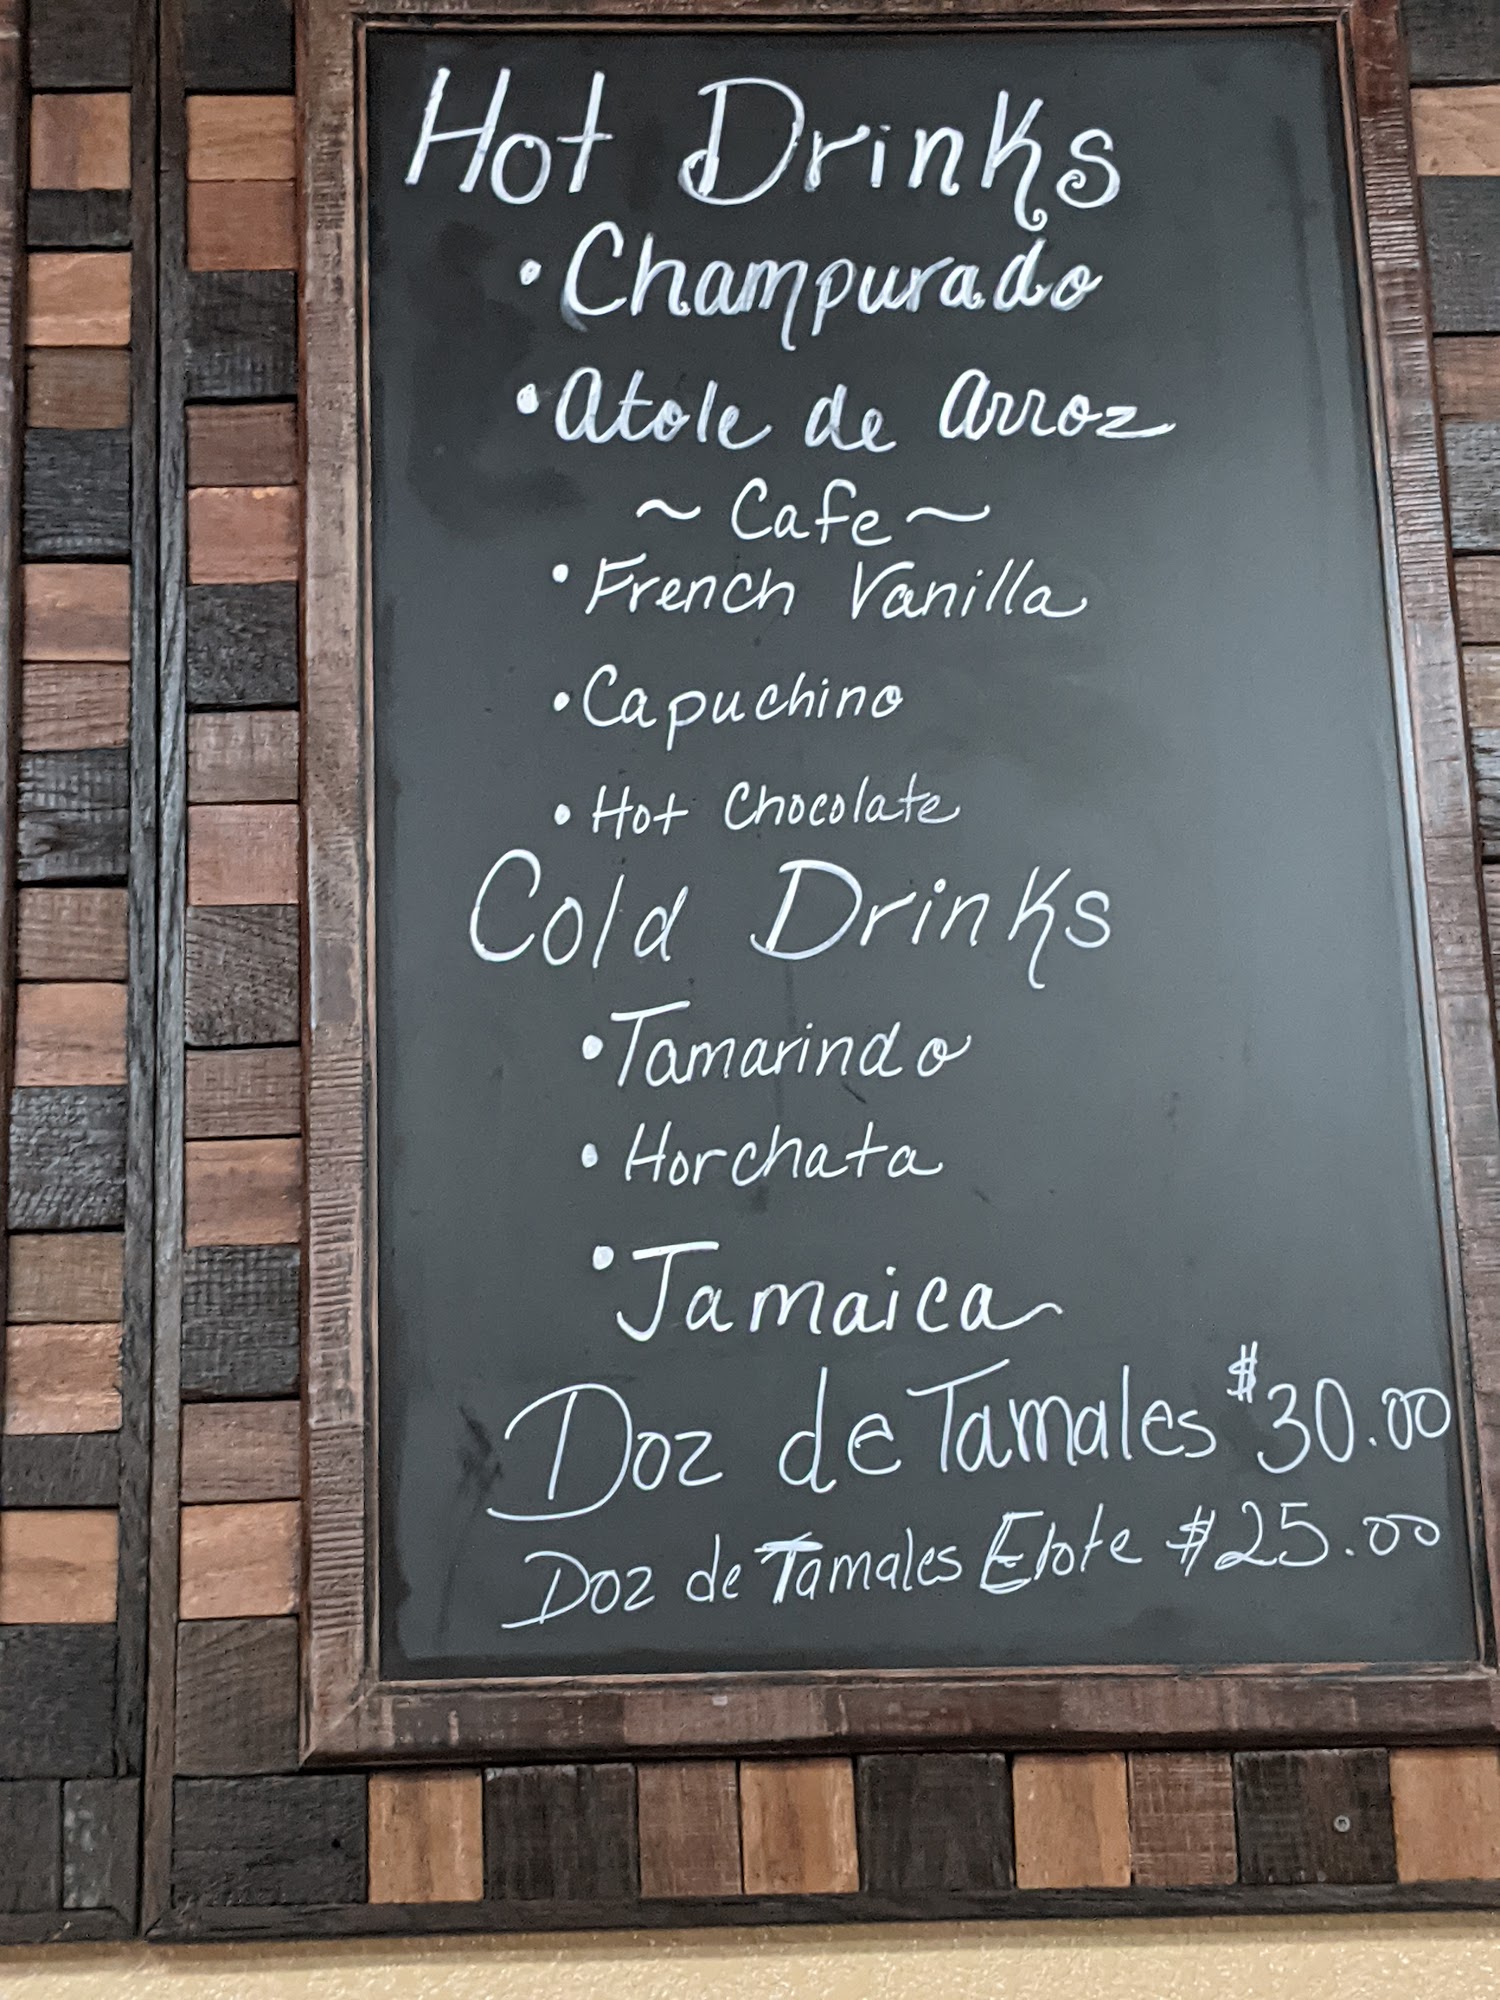 Hot Drinks
• Champurado
• Atole de Arroz
~ Cafe ~
• French Vanilla
• Capuchino
• Hot Chocolate
Cold Drinks
• Tamarindo
• Horchata
• Jamaica
Doz de Tamales $30.00
Doz de Tamales Elote $25.00